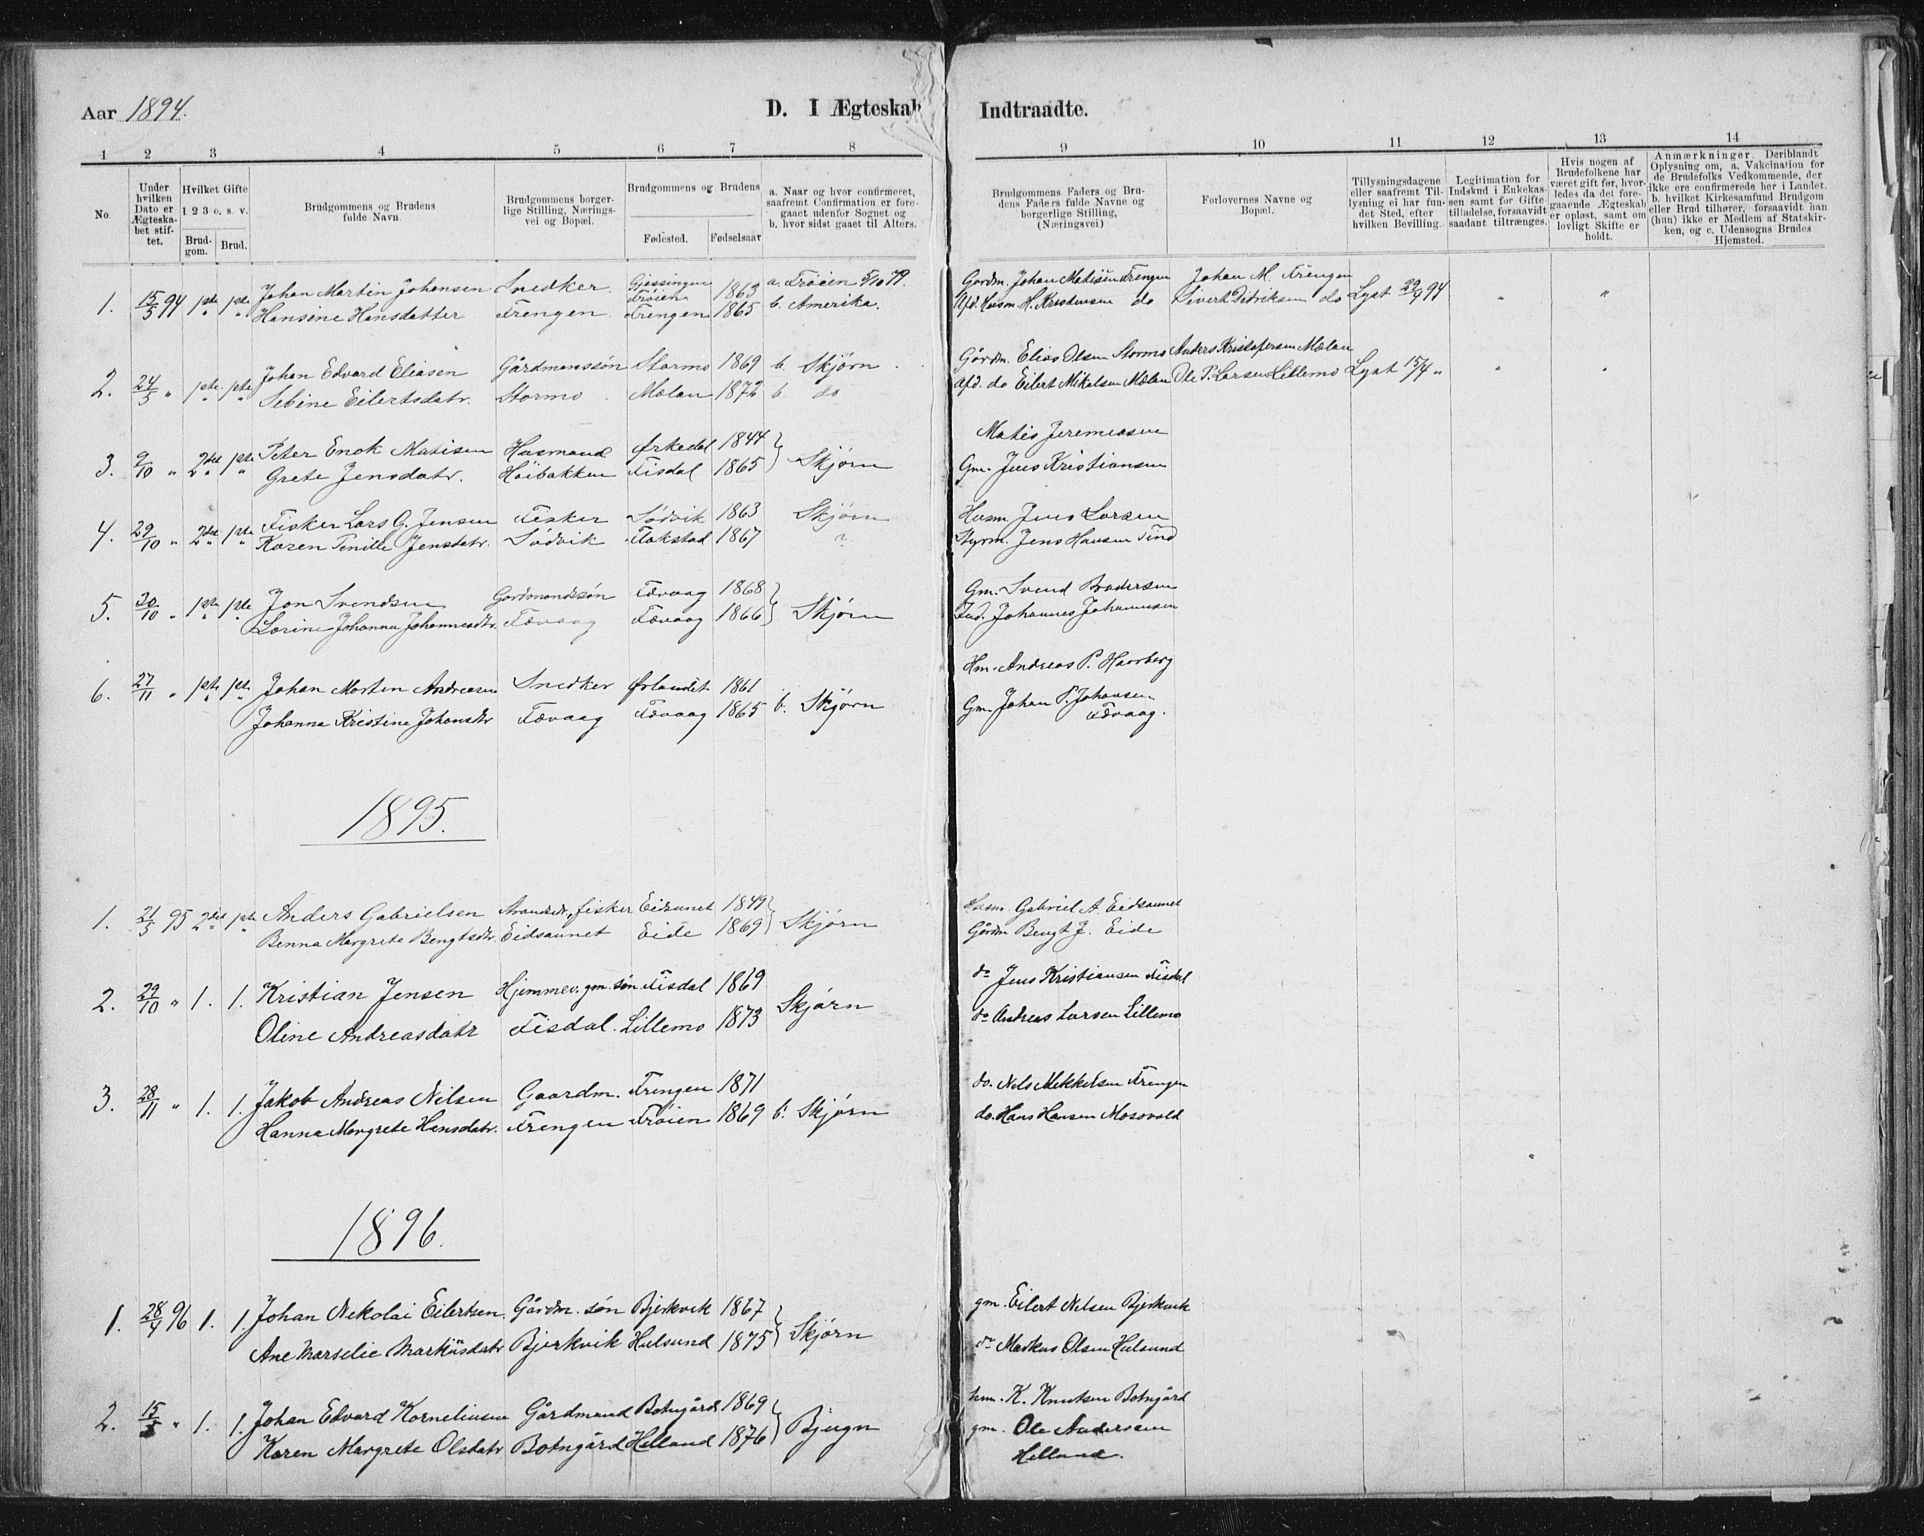 Aar 1894.
D. I Ægteskab Indtraadte.
1 2 3 4 5 6 7 8 9 10 11 12 13 14
No.
Under hvilken Dato er Ægteskabet stiftet.
Hvilket Gifte
1 2 3 o. s. v.
Brudgom. Brud.
Brudgommens og Brudens fulde Navn.
Brudgommens borgerlige Stilling, Næringsvei og Bopæl.
Brudgommens og Brudens
Fødested. Fødselsaar
a. Naar og hvor confirmeret, saafremt Confirmation er foregaaet udenfor Sognet og b. hvor sidst gaaet til Alters.
Brudgommens Faders og Brudens Faders fulde Navne og borgerlige Stilling, (Næringsvei)
Forlovernes Navne og Bopæl.
Tillysningsdagene eller saafremt Tillysning ei har fundet Sted, efter hvilken Bevilling.
Legitimation for Indskud i Enkekassen samt for Giftetilladelse, forsaavidt saadant tiltrænges.
Hvis nogen af Brudefolkene har været gift før, hvorledes da det foregaaende Ægteskab er opløst, samt om lovligt Skifte er holdt.
Anmærkninger. Deriblandt Oplysning om, a. Vakcination for de Brudefolks Vedkommende, der ikke ere confirmerede her i Landet. b. hvilket Kirkesamfund Brudgom eller Brud tilhører, forsaavidt han (hun) ikke er Medlem af Statskirken, og c. Udensogns Brudes Hjemsted.
1. 15/5 94 1ste 1ste Johan Martin Johansen Snedker Gjessingen Frøien 1863 a. Frøien 5/10 79. Gordm. Johan Matisen Frengen Johan M. Frengen
Hansine Hansdatter Frengen Frengen 1865 b. Amerika. Afd. Husm. H. Kristensen do Sivert Dedriksen do Lyst 29/4 94 " "
2. 24/5 " 1ste 1ste Johan Edvard Eliasen Gårdmanssøn Stormo 1869 b. Skjørn Gårdm. Elias Olsen Stormo Anders Kristofersen Mælan
Sebine Eilertsdatr. Stormo Mælan 1872 b. do Afd. do Eilert Mikalsen Mælan Ole P. Larsen Lillemo Lyst 15/4 " " "
3. 9/10 " 2det 1ste Peter Enok Matisen Husmand Ørkedal 1844 Matis Jeremiasen
Grete Jensdatr. Høibakken Fisdal 1865 Skjørn Gm. Jens Kristiansen
4. 29/10 " 2det 1ste Fisker Lars G. Jensen Fisker Sødvik 1863 Skjørn Husm. Jens Larsen
Karen Penille Jensdatr. Sødvik Flakstad 1867 " Styrm. Jens Hansen Tind
5. 30/10 " 1ste 1ste Jon Svendsen Gordmandssøn Fævaag 1868 Gm. Svend Brodersen
Lorine Johanna Johannesdtr. Fævaag Fævaag 1866 Skjørn Ind. Johannes Johannesen
6. 27/11 " 1ste 1ste Johan Morten Andreasen Snedker Ørlandet 1861 Hm. Andreas P. Haarberg
Johanna Kristine Johansdtr Fævaag Fævaag 1865 b. Skjørn Gm. Johan P. Johansen
Fævaag.
1895.
1. 21/5 95 2det 1ste Anders Gabrielsen Strandsid., fisker Eidsunet 1849 Husm. Gabriel A Eidsaunet
Benna Margrete Bengtsdtr. Eidsaunet Eide 1869 Skjørn Gårdm Bengt J. Eide
2. 29/10 " 1. 1. Kristian Jensen Hjemmev. gm. søn Fisdal 1869 do Jens Kristiansen Fisdal
Oline Andreasdatr Fisdal. Lillemo 1873 Skjørn do Andreas Larsen Lillemo
3. 28/11 " 1. 1. Jakob Andreas Nilsen Gaardm. Frengen 1871 do. Nils Mikkelsen Frengen
Hanna Margrete Hansdatr. Frengen Frøien 1869 b. Skjørn do. Hans Hansen Mosovald
1896.
1. 28/4 96 1. 1. Johan Nekolai Eilertsen Gårdm. søn Bjerkvik 1867 gm. Eilert Nelsen Bjerkvik
Ane Marselie Markusdatr Bjerkvik Hulsund 1875 Skjørn do Markus Olsen Hulsund
2. 15/5 " 1. 1. Johan Edvard Korneliusen Gårdmand Botngård 1869 hm. K. Knutsen Botngård
Karen Margrete Olsdatr Botngård Helland 1876 Bjugn gm. Ole Andersen
Helland.